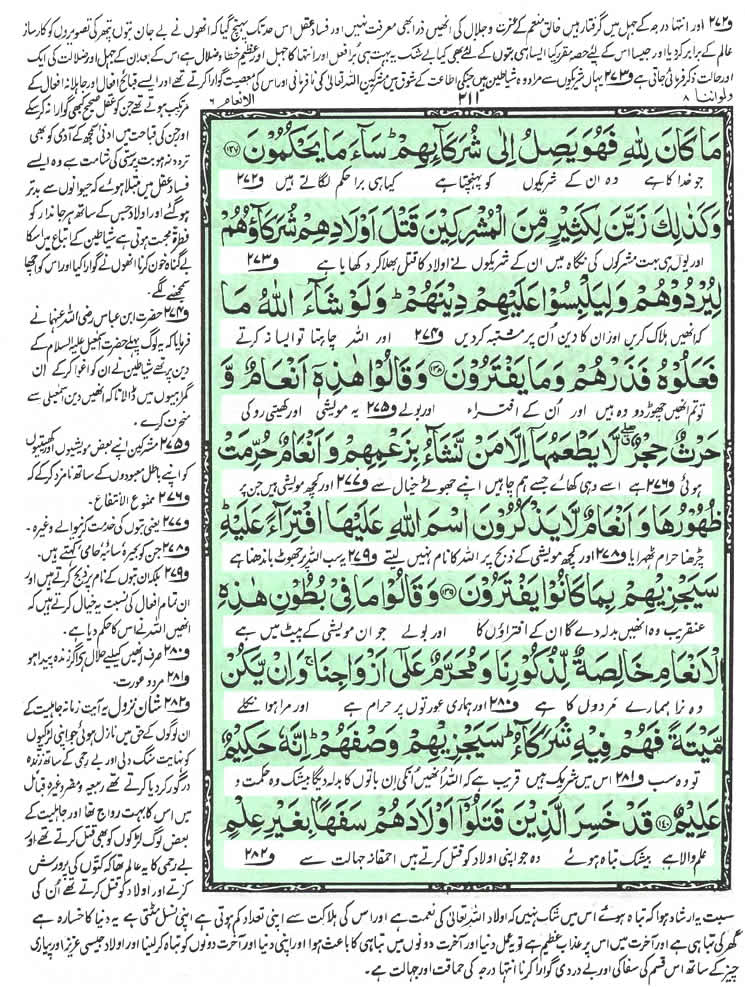 و۲۷۲ اور انتہا درجہ کے جہل میں گرفتار ہیں خالق منعم کے عزت و جلال کی انھیں ذرا بھی معرفت نہیں اور فساد عقل اس حد تک پہنچ گیا کہ انھوں نے بے جان بتوں پتھر کی تصویروں کو کارساز
عالم کے برابر کر دیا اور جیسا اس کے لئے حصہ مقرر کیا ایسا ہی بتوں کے لئے بھی کیا بے شک یہ بہت ہی برا فعل اور انتہا کا جہل اور عظیم خطا و ضلال ہے اس کے بعد ان کے جہل اور ضلالت کی ایک
اور حالت ذکر فرمائی جاتی ہے و۲۷۳ یہاں شریکوں سے مراد وہ شیاطین ہیں جن کی اطاعت کے شوق میں مشرکین اللہ تعالیٰ کی نافرمانی اور اس کی معصیت گوارا کرتے تھے اور ایسے قبائح افعال اور جاہلانہ افعال کے
ولو اننا ۸
۲۱۱
الانعام ۶
مَا كَانَ لِلّٰهِ فَهُوَ يَصِلُ اِلٰى شُرَكَآئِهِمْ ؕ سَآءَ مَا يَحْكُمُوْنَ ﴿۱۳۷﴾
جو خدا کا ہے وہ ان کے شریکوں کو پہنچتا ہے کیا ہی برا حکم لگاتے ہیں و۲۷۲
وَ كَذٰلِكَ زَيَّنَ لِكَثِيْرٍ مِّنَ الْمُشْرِكِيْنَ قَتْلَ اَوْلَادِهِمْ شُرَكَآؤُهُمْ
اور یوں ہی بہت مشرکوں کی نگاہ میں ان کے شریکوں نے اولاد کا قتل بھلا کر دکھایا ہے و۲۷۳
لِيُرْدُوْهُمْ وَ لِيَلْبِسُوْا عَلَيْهِمْ دِيْنَهُمْ ؕ وَ لَوْ شَآءَ اللّٰهُ مَا
کہ انھیں ہلاک کریں اور ان کا دین اُن پر مشتبہ کر دیں و۲۷۴ اور اللہ چاہتا تو ایسا نہ کرتے
فَعَلُوْهُ فَذَرْهُمْ وَ مَا يَفْتَرُوْنَ ﴿۱۳۸﴾ وَ قَالُوْا هٰذِهٖۤ اَنْعَامٌ وَّ
تو تم انھیں چھوڑ دو وہ ہیں اور اُن کے افتراء اور بولے و۲۷۵ یہ مویشی اور کھیتی روکی
حَرْثٌ حِجْرٌ ۖ لَّا يَطْعَمُهَاۤ اِلَّا مَنْ نَّشَآءُ بِزَعْمِهِمْ وَ اَنْعَامٌ حُرِّمَتْ
ہوئی و۲۷۶ ہے اسے وہی کھائے جسے ہم چاہیں اپنے جھوٹے خیال سے و۲۷۷ اور کچھ مویشی ہیں جن پر
ظُهُوْرُهَا وَ اَنْعَامٌ لَّا يَذْكُرُوْنَ اسْمَ اللّٰهِ عَلَيْهَا افْتِرَآءً عَلَيْهِ ؕ
چڑھنا حرام ٹھہرایا و۲۷۸ اور کچھ مویشی کے ذبح پر اللہ کا نام نہیں لیتے و۲۷۹ یہ سب اللہ پر جھوٹ باندھنا ہے
سَيَجْزِيْهِمْ بِمَا كَانُوْا يَفْتَرُوْنَ ﴿۱۳۹﴾ وَ قَالُوْا مَا فِيْ بُطُوْنِ هٰذِهِ
عنقریب وہ انھیں بدلہ دے گا ان کے افتراؤں کا اور بولے جو ان مویشی کے پیٹ میں ہے
الْاَنْعَامِ خَالِصَةٌ لِّذُكُوْرِنَا وَ مُحَرَّمٌ عَلٰۤى اَزْوَاجِنَا ۚ وَ اِنْ يَّكُنْ
وہ نرا ہمارے مردوں کا ہے و۲۸۰ اور ہماری عورتوں پر حرام ہے اور مرا ہوا نکلے
مَّيْتَةً فَهُمْ فِيْهِ شُرَكَآءُ ؕ سَيَجْزِيْهِمْ وَصْفَهُمْ ؕ اِنَّهٗ حَكِيْمٌ
تو وہ سب و۲۸۱ اس میں شریک ہیں قریب ہے کہ اللہ انھیں اُنکی اِن باتوں کا بدلہ دیگا بیشک وہ حکمت و
عَلِيْمٌ ﴿۱۴۰﴾ قَدْ خَسِرَ الَّذِيْنَ قَتَلُوْۤا اَوْلَادَهُمْ سَفَهًۢا بِغَيْرِ عِلْمٍ
علم والا ہے بیشک تباہ ہوئے وہ جو اپنی اولاد کو قتل کرتے ہیں احمقانہ جہالت سے و۲۸۲
مرتکب ہوتے تھے جن کو عقل صحیح کبھی گوارا نہ کر سکے
اور جن کی قباحت میں ادنیٰ سمجھ کے آدمی کو بھی
تردد نہ ہو بت پرستی کی شامت سے وہ ایسے
فساد عقل میں مبتلا ہوئے کہ حیوانوں سے بدتر
ہو گئے اور اولاد جس کے ساتھ ہر جاندار کو
فطرۃً محبت ہوتی ہے شیاطین کے اتباع میں اس کا
بے گناہ خون کرنا انھوں نے گوارا کیا اور اس کو اچھا
سمجھنے لگے۔
و۲۷۴ حضرت ابن عباس رضی اللہ عنہما نے
فرمایا کہ یہ لوگ پہلے حضرت اسمٰعیل علیہ السلام کے
دین پر تھے شیاطین نے ان کو اغوا کر کے ان
گمراہیوں میں ڈالا تاکہ انھیں دین اسمٰعیلی سے
منحرف کرے۔
و۲۷۵ مشرکین اپنے بعض مویشیوں اور کھیتیوں
کو اپنے باطل معبودوں کے ساتھ نامزد کر کے کہ
و۲۷۶ ممنوع الانتفاع۔
و۲۷۷ یعنی بتوں کی خدمت کرنے والے وغیرہ۔
و۲۷۸ جن کو بحیرہ سائبہ حامی کہتے ہیں۔
و۲۷۹ بلکہ ان بتوں کے نام پر ذبح کرتے ہیں اور
ان تمام افعال کی نسبت یہ خیال کرتے ہیں کہ
انھیں اللہ نے اس کا حکم دیا ہے۔
و۲۸۰ صرف انھیں کیلئے حلال ہے اگر زندہ پیدا ہو
و۲۸۱ مرد و عورت۔
و۲۸۲ شان نزول یہ آیت زمانہ جاہلیت کے
ان لوگوں کے حق میں نازل ہوئی جو اپنی لڑکیوں
کو نہایت سنگ دلی اور بے رحمی کے ساتھ زندہ
درگور کر دیا کرتے تھے ربیعہ و مضر وغیرہ قبائل
میں اس کا بہت رواج تھا اور جاہلیت کے
بعض لوگ لڑکوں کو بھی قتل کرتے تھے اور
بے رحمی کا یہ عالم تھا کہ کتوں کی پرورش
کرتے اور اولاد کو قتل کرتے تھے اُن کی
نسبت یہ ارشاد ہوا کہ تباہ ہوئے اس میں شک نہیں کہ اولاد اللہ تعالیٰ کی نعمت ہے اور اس کی ہلاکت سے اپنی تعداد کم ہوتی ہے اپنی نسل مٹتی ہے یہ دنیا کا خسارہ ہے
گھر کی تباہی ہے اور آخرت میں اس پر عذاب عظیم ہے تو یہ عمل دنیا اور آخرت دونوں میں تباہی کا باعث ہوا اور اپنی دنیا اور آخرت دونوں کو تباہ کر لینا اور اولاد جیسی عزیز اور پیاری
چیز کے ساتھ اس قسم کی سفاکی اور بے دردی گوارا کرنا انتہا درجہ کی حماقت اور جہالت ہے۔